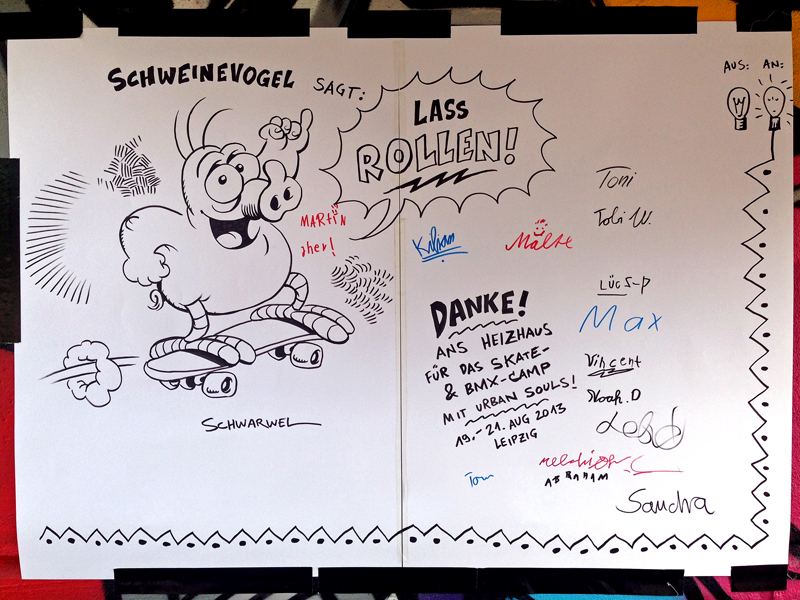 SCHWEINEVOGEL
SAGT:
LASS
ROLLEN!
AUS: AN:
Toni
Tobi W.
MARTIN
Kilian
Malte
LUCS-P
Max
DANKE!
ANS HEIZHAUS
FÜR DAS SKATE-
& BMX-CAMP
MIT URBAN SOULS!
19.-21. AUG 2013
LEIPZIG
Vincent
Noah.D
SCHWARWEL
Tom
melchior
ABRAHAM
Sandra